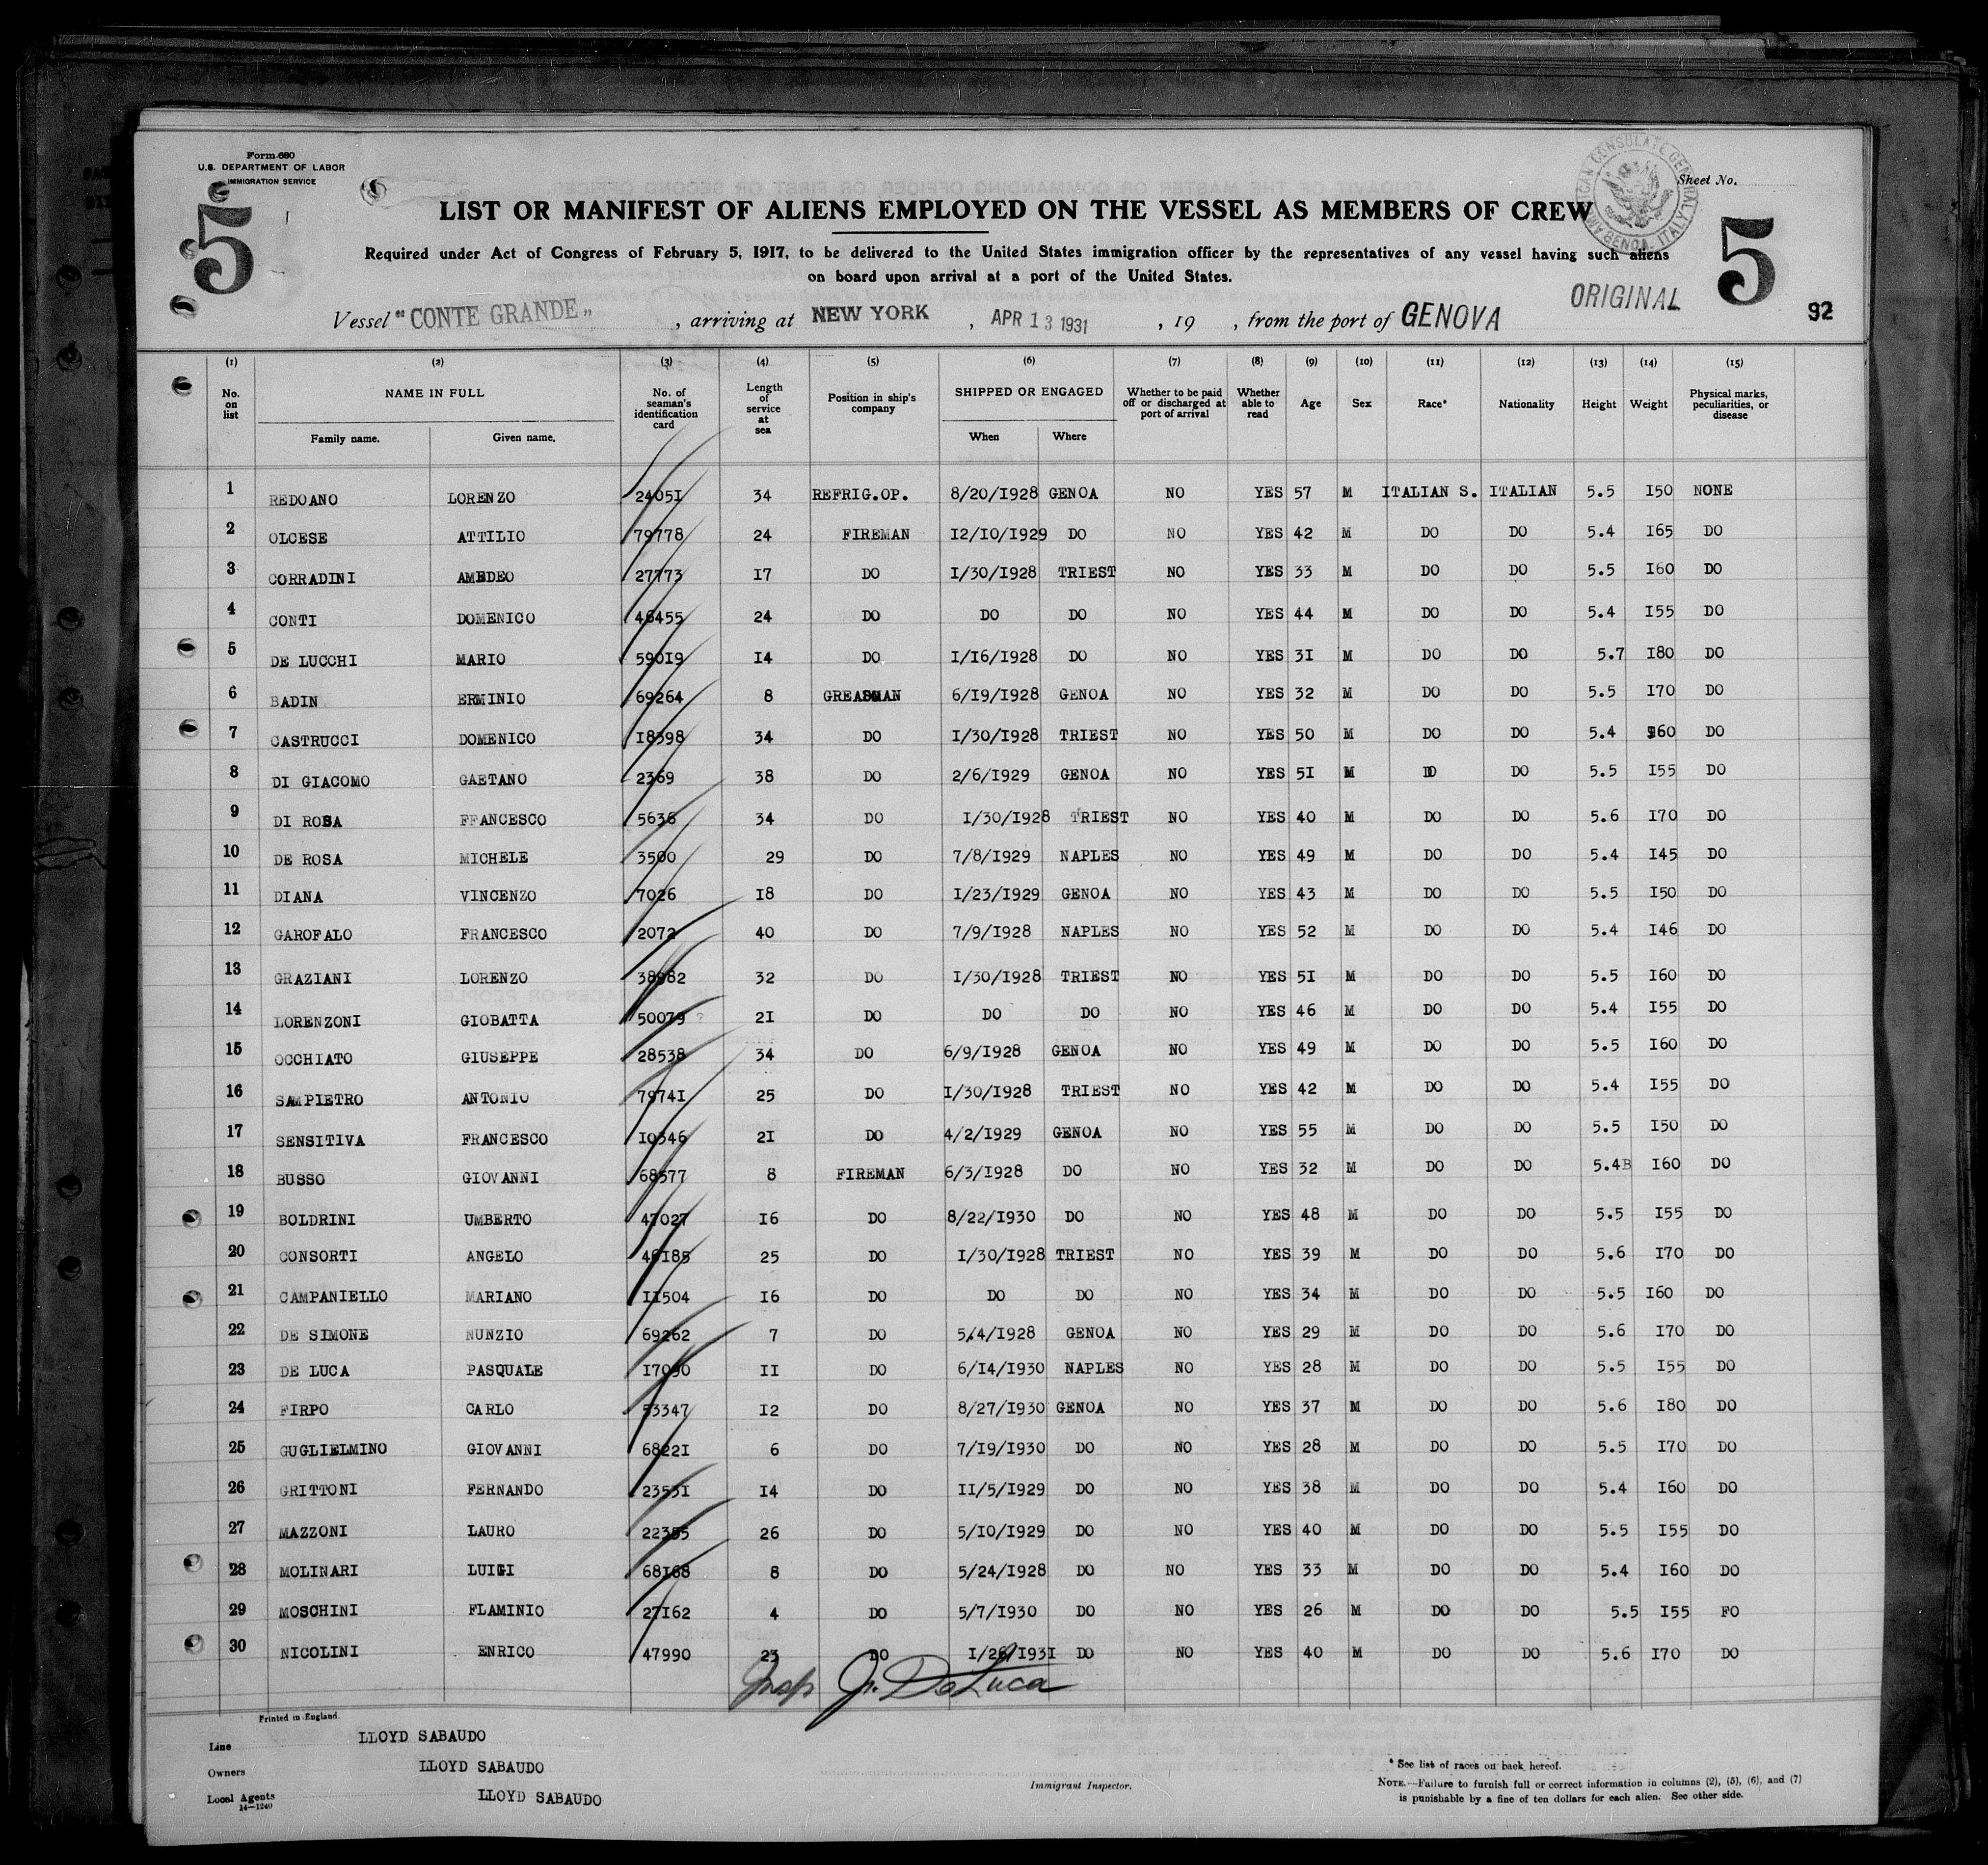 Form 690
U.S. DEPARTMENT OF LABOR
IMMIGRATION SERVICE
5
AMERICAN CONSULATE GENERAL GENOA, ITALY
Sheet No.
LIST OR MANIFEST OF ALIENS EMPLOYED ON THE VESSEL AS MEMBERS OF CREW
5
Required under Act of Congress of February 5, 1917, to be delivered to the United States immigration officer by the representatives of any vessel having such aliens
on board upon arrival at a port of the United States.
ORIGINAL
92
Vessel "CONTE GRANDE", arriving at NEW YORK, APR 13 1931, 19 , from the port of GENOVA
(1) (2) (3) (4) (5) (6) (7) (8) (9) (10) (11) (12) (13) (14) (15)
No. on list NAME IN FULL No. of seaman's identification card Length of service at sea Position in ship's company SHIPPED OR ENGAGED Whether to be paid off or discharged at port of arrival Whether able to read Age Sex Race* Nationality Height Weight Physical marks, peculiarities, or disease
Family name. Given name. When Where
1 REDOANO LORENZO 24051 34 REFRIG.OP. 8/20/1928 GENOA NO YES 57 M ITALIAN S. ITALIAN 5.5 150 NONE
2 OLCESE ATTILIO 79778 24 FIREMAN 12/10/1929 DO NO YES 42 M DO DO 5.4 165 DO
3 CORRADINI AMEDEO 27773 17 DO 1/30/1928 TRIEST NO YES 33 M DO DO 5.5 160 DO
4 CONTI DOMENICO 46455 24 DO DO DO NO YES 44 M DO DO 5.4 155 DO
5 DE LUCCHI MARIO 59019 14 DO 1/16/1928 DO NO YES 31 M DO DO 5.7 180 DO
6 BADIN ERMINIO 69264 8 GREASMAN 6/19/1928 GENOA NO YES 32 M DO DO 5.5 170 DO
7 CASTRUCCI DOMENICO 18398 34 DO 1/30/1928 TRIEST NO YES 50 M DO DO 5.4 160 DO
8 DI GIACOMO GAETANO 2369 38 DO 2/6/1929 GENOA NO YES 51 M DO DO 5.5 155 DO
9 DI ROSA FRANCESCO 5636 34 DO 1/30/1928 TRIEST NO YES 40 M DO DO 5.6 170 DO
10 DE ROSA MICHELE 3500 29 DO 7/8/1929 NAPLES NO YES 49 M DO DO 5.4 145 DO
11 DIANA VINCENZO 7026 18 DO 1/23/1929 GENOA NO YES 43 M DO DO 5.5 150 DO
12 GAROFALO FRANCESCO 2072 40 DO 7/9/1928 NAPLES NO YES 52 M DO DO 5.4 146 DO
13 GRAZIANI LORENZO 38982 32 DO 1/30/1928 TRIEST NO YES 51 M DO DO 5.5 160 DO
14 LORENZONI GIOBATTA 50079 21 DO DO DO NO YES 46 M DO DO 5.4 155 DO
15 OCCHIATO GIUSEPPE 28538 34 DO 6/9/1928 GENOA NO YES 49 M DO DO 5.5 160 DO
16 SAMPIETRO ANTONIO 79741 25 DO 1/30/1928 TRIEST NO YES 42 M DO DO 5.4 155 DO
17 SENSITIVA FRANCESCO 10346 21 DO 4/2/1929 GENOA NO YES 55 M DO DO 5.5 150 DO
18 BUSSO GIOVANNI 68577 8 FIREMAN 6/3/1928 DO NO YES 32 M DO DO 5.4B 160 DO
19 BOLDRINI UMBERTO 47027 16 DO 8/22/1930 DO NO YES 48 M DO DO 5.5 155 DO
20 CONSORTI ANGELO 46185 25 DO 1/30/1928 TRIEST NO YES 39 M DO DO 5.6 170 DO
21 CAMPANIELLO MARIANO 11504 16 DO DO DO NO YES 34 M DO DO 5.5 160 DO
22 DE SIMONE NUNZIO 69262 7 DO 5/4/1928 GENOA NO YES 29 M DO DO 5.6 170 DO
23 DE LUCA PASQUALE 17090 11 DO 6/14/1930 NAPLES NO YES 28 M DO DO 5.5 155 DO
24 FIRPO CARLO 53347 12 DO 8/27/1930 GENOA NO YES 37 M DO DO 5.6 180 DO
25 GUGLIELMINO GIOVANNI 68221 6 DO 7/19/1930 DO NO YES 28 M DO DO 5.5 170 DO
26 GRITTONI FERNANDO 23531 14 DO 11/5/1929 DO NO YES 38 M DO DO 5.4 160 DO
27 MAZZONI LAURO 22355 26 DO 5/10/1929 DO NO YES 40 M DO DO 5.5 155 DO
28 MOLINARI LUIGI 68168 8 DO 5/24/1928 DO NO YES 33 M DO DO 5.4 160 DO
29 MOSCHINI FLAMINIO 27162 4 DO 5/7/1930 DO NO YES 26 M DO DO 5.5 155 FO
30 NICOLINI ENRICO 47990 23 DO 1/26/1931 DO NO YES 40 M DO DO 5.6 170 DO
Insp J. De Luca
Printed in England.
Line LLOYD SABAUDO
Owners LLOYD SABAUDO
Local Agents LLOYD SABAUDO
14-1240
Immigrant Inspector.
* See list of races on back hereof.
NOTE.—Failure to furnish full or correct information in columns (2), (5), (6), and (7)
is punishable by a fine of ten dollars for each alien. See other side.